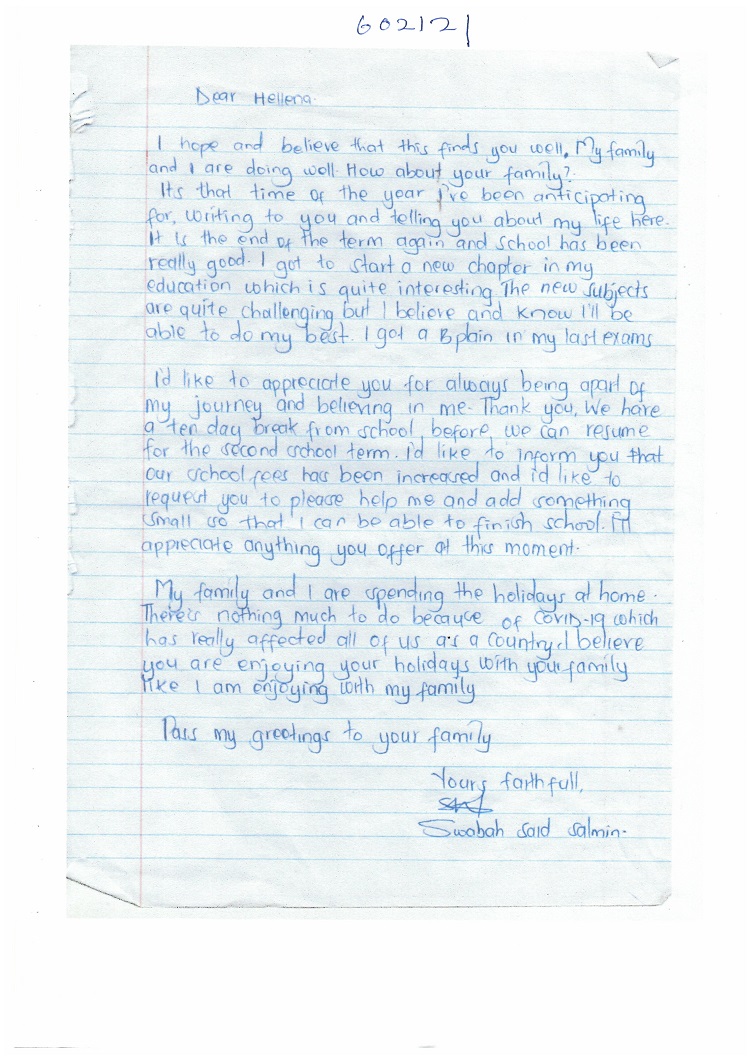 602121
Dear Hellena.
I hope and believe that this finds you well. My family
and I are doing well. How about your family?
Its that time of the year I've been anticipating
for, writing to you and telling you about my life here.
It is the end of the term again and school has been
really good. I got to start a new chapter in my
education which is quite interesting The new subjects
are quite challenging but I believe and know I'll be
able to do my best. I got a B plain in my last exams
I'd like to appreciate you for always being apart of
my journey and believing in me. Thank you, We have
a ten day break from school before we can resume
for the second school term. I'd like to inform you that
our school fees has been increased and i'd like to
request you to please help me and add something
small so that I can be able to finish school. I'll
appreciate anything you offer at this moment.
My family and I are spending the holidays at home.
There's nothing much to do because of COVID-19 which
has really affected all of us as a country. I believe
you are enjoying your holidays with your family
like I am enjoying with my family
Pass my greetings to your family
Yours faithfull,
Swabah said salmin.